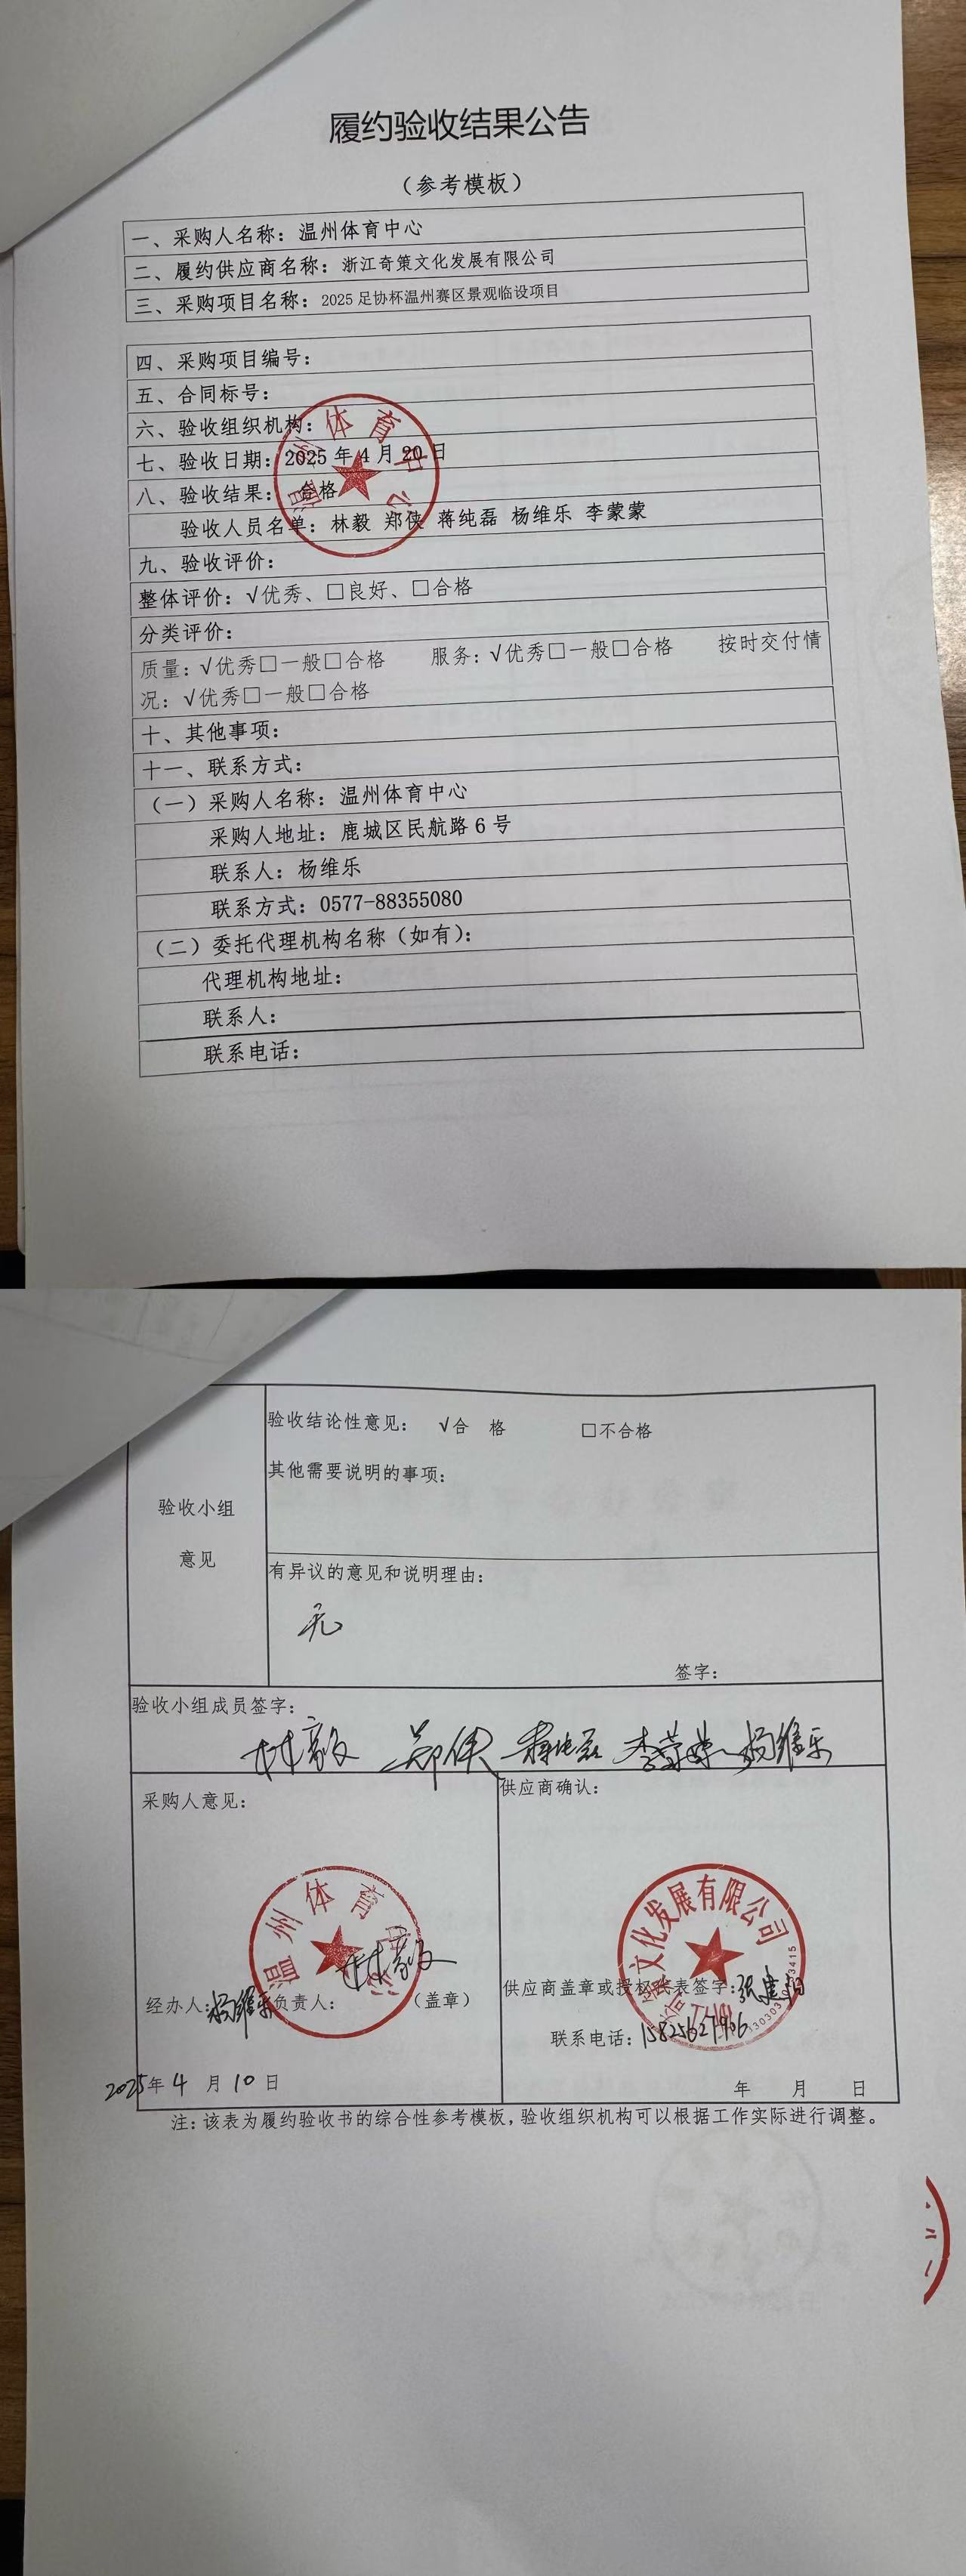 履约验收结果公告
（参考模板）
一、采购人名称：温州体育中心
二、履约供应商名称：浙江奇策文化发展有限公司
三、采购项目名称：2025足协杯温州赛区景观临设项目
四、采购项目编号：
五、合同标号：
六、验收组织机构：
七、验收日期：2025年4月20日
八、验收结果： 合格
验收人员名单：林毅 郑侠 蒋纯磊 杨维乐 李蒙蒙
九、验收评价：
整体评价：√优秀、□良好、□合格
分类评价：
质量：√优秀□一般□合格 服务：√优秀□一般□合格 按时交付情
况：√优秀□一般□合格
十、其他事项：
十一、联系方式：
（一）采购人名称：温州体育中心
采购人地址：鹿城区民航路6号
联系人：杨维乐
联系方式：0577-88355080
（二）委托代理机构名称（如有）：
代理机构地址：
联系人：
联系电话：
温州体育中心
验收小组
意见
验收结论性意见： √合 格 □不合格
其他需要说明的事项：
有异议的意见和说明理由：
无
签字：
验收小组成员签字：
林毅 郑侠 蒋纯磊 李蒙蒙 杨维乐
采购人意见：
温州体育中心
经办人：杨维乐 负责人：林毅 （盖章）
2025年4月10日
供应商确认：
文化发展有限公司
供应商盖章或授权代表签字：张建
联系电话：15825627906
年 月 日
注：该表为履约验收书的综合性参考模板，验收组织机构可以根据工作实际进行调整。